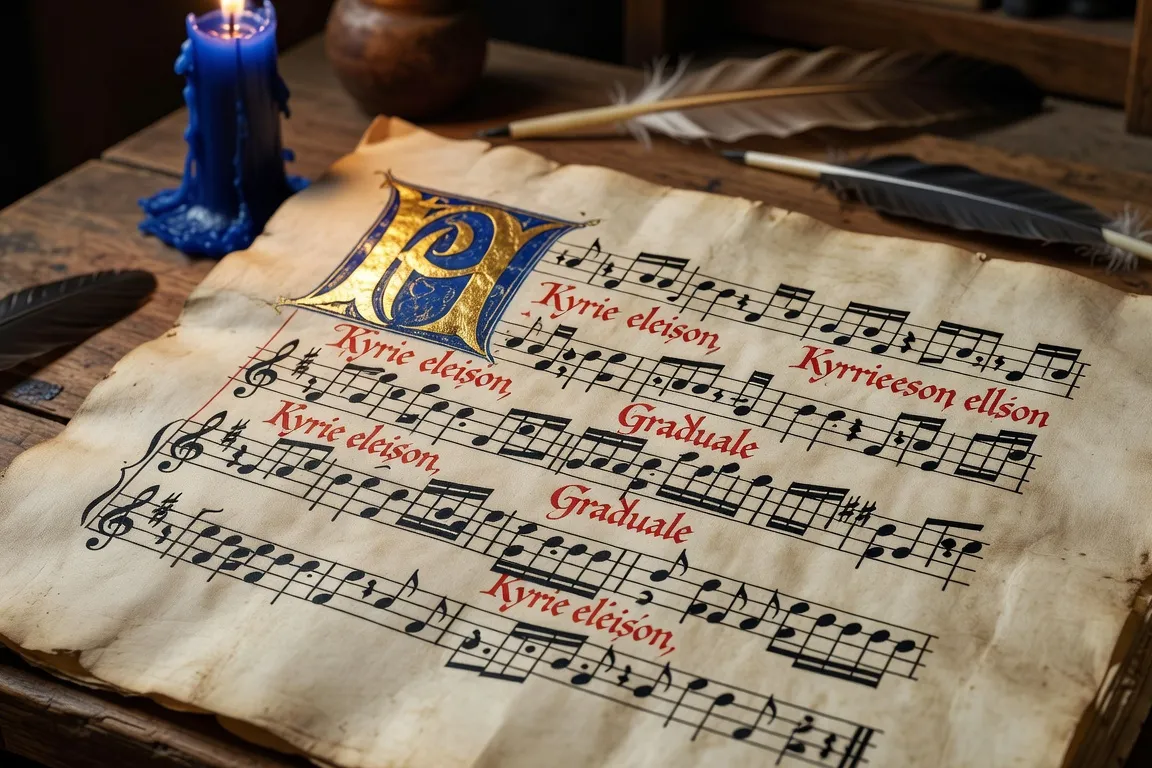 Kyrie eleison,
Kyrrieeson ellśon
Kyrie eleison,
Graduale
Kyrie eleison,
Graduale
Kyrie eléisón,